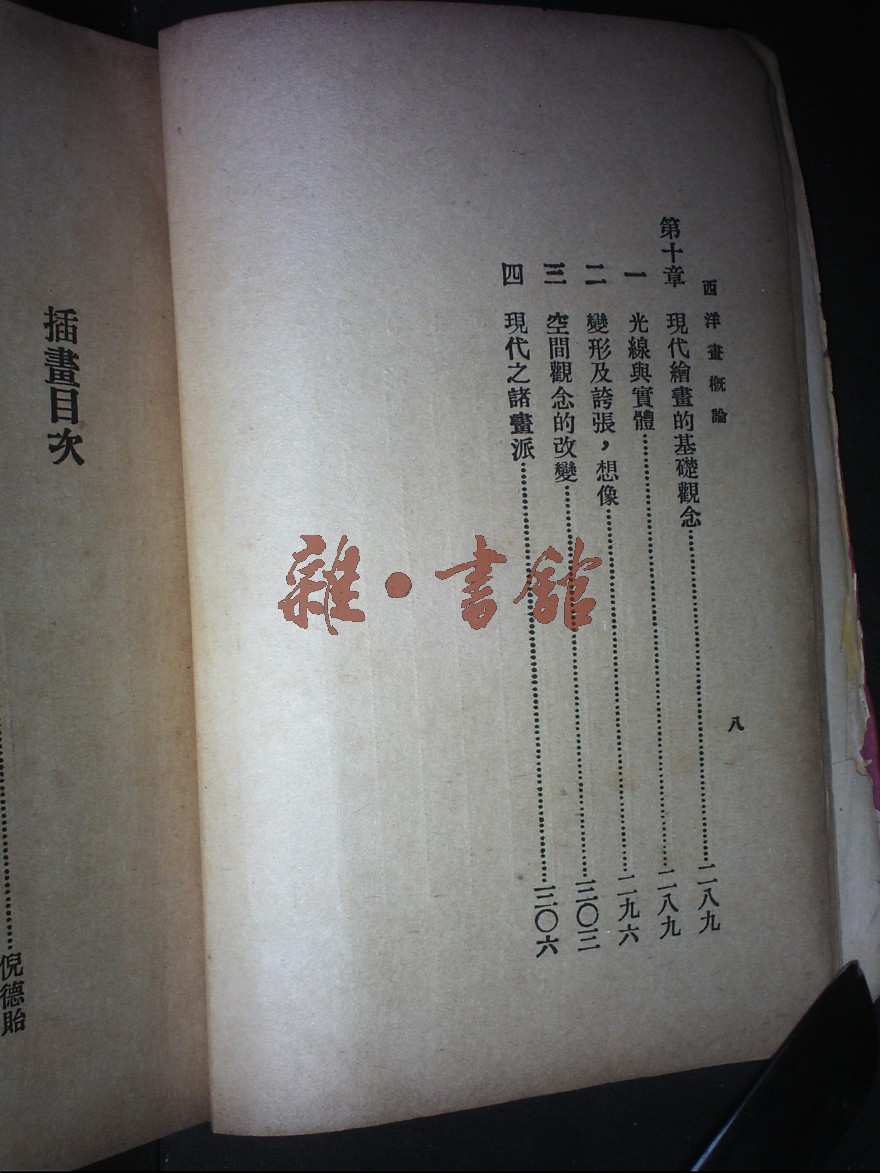 西洋畫概論
八
第十章 現代繪畫的基礎觀念……二八九
一 光線與實體……二八九
二 變形及誇張，想像……二九六
三 空間觀念的改變……三〇三
四 現代之諸畫派……三〇六
雜·書館
插畫目次
……倪德貽